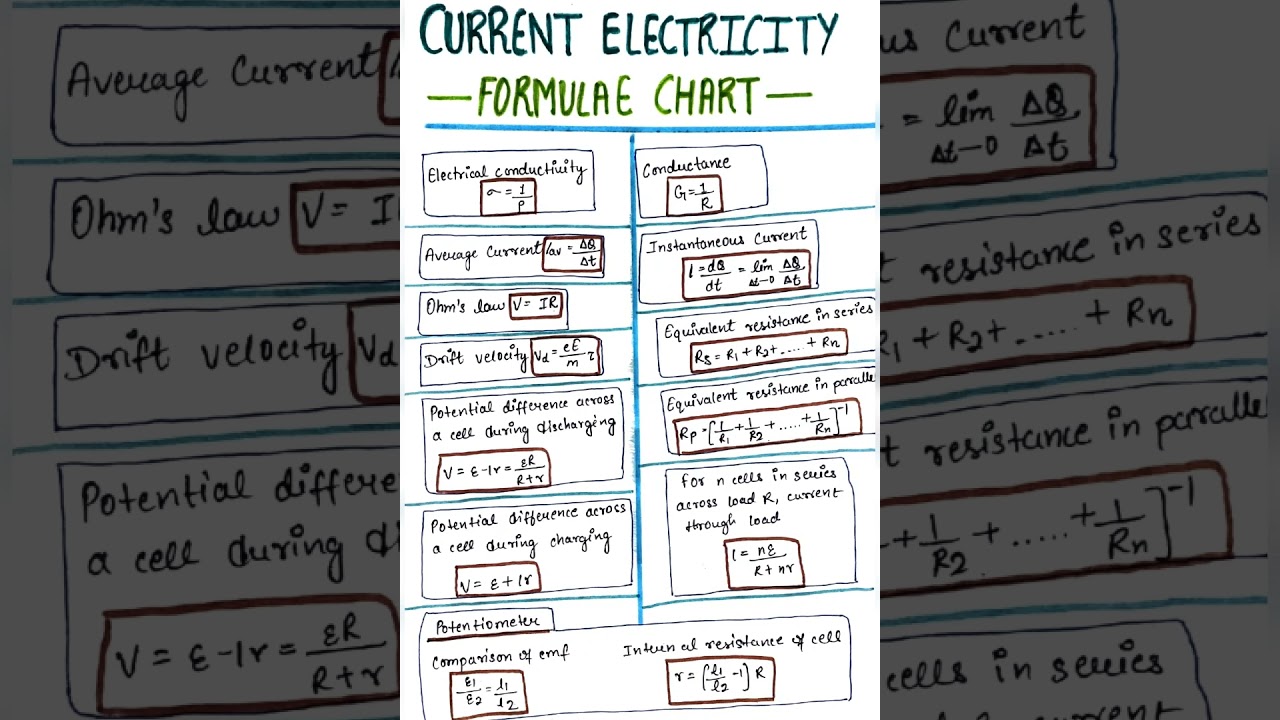 CURRENT ELECTRICITY
— FORMULAE CHART —
Electrical conductivity
σ = 1/ρ
Average Current Iav = ΔQ/Δt
Ohm's law V = IR
Drift velocity Vd = eE/m τ
Potential difference across
a cell during discharging
V = ε - Ir = εR/R+r
Potential difference across
a cell during charging
V = ε + Ir
Conductance
G = 1/R
Instantaneous Current
I = dQ/dt = lim Δt→0 ΔQ/Δt
Equivalent resistance in series
Rs = R1 + R2 + ..... + Rn
Equivalent resistance in paralle
Rp = [1/R1 + 1/R2 + ..... + 1/Rn]^-1
For n cells in series
across load R, current
through load
I = nε/R + nr
Potentiometer
Comparison of emf
ε1/ε2 = l1/l2
Internal resistance of cell
r = [l1/l2 - 1] R
Average Current
Ohm's law V = I
Drift velocity Vd
Potential differe
a cell during di
V = ε - Ir = εR/R+r
us Current
= lim Δt→0 ΔQ/Δt
t resistance in series
R1 + R2 + ..... + Rn
t resistance in paralle
+ 1/R2 + ..... + 1/Rn]^-1
cells in series
load R, current